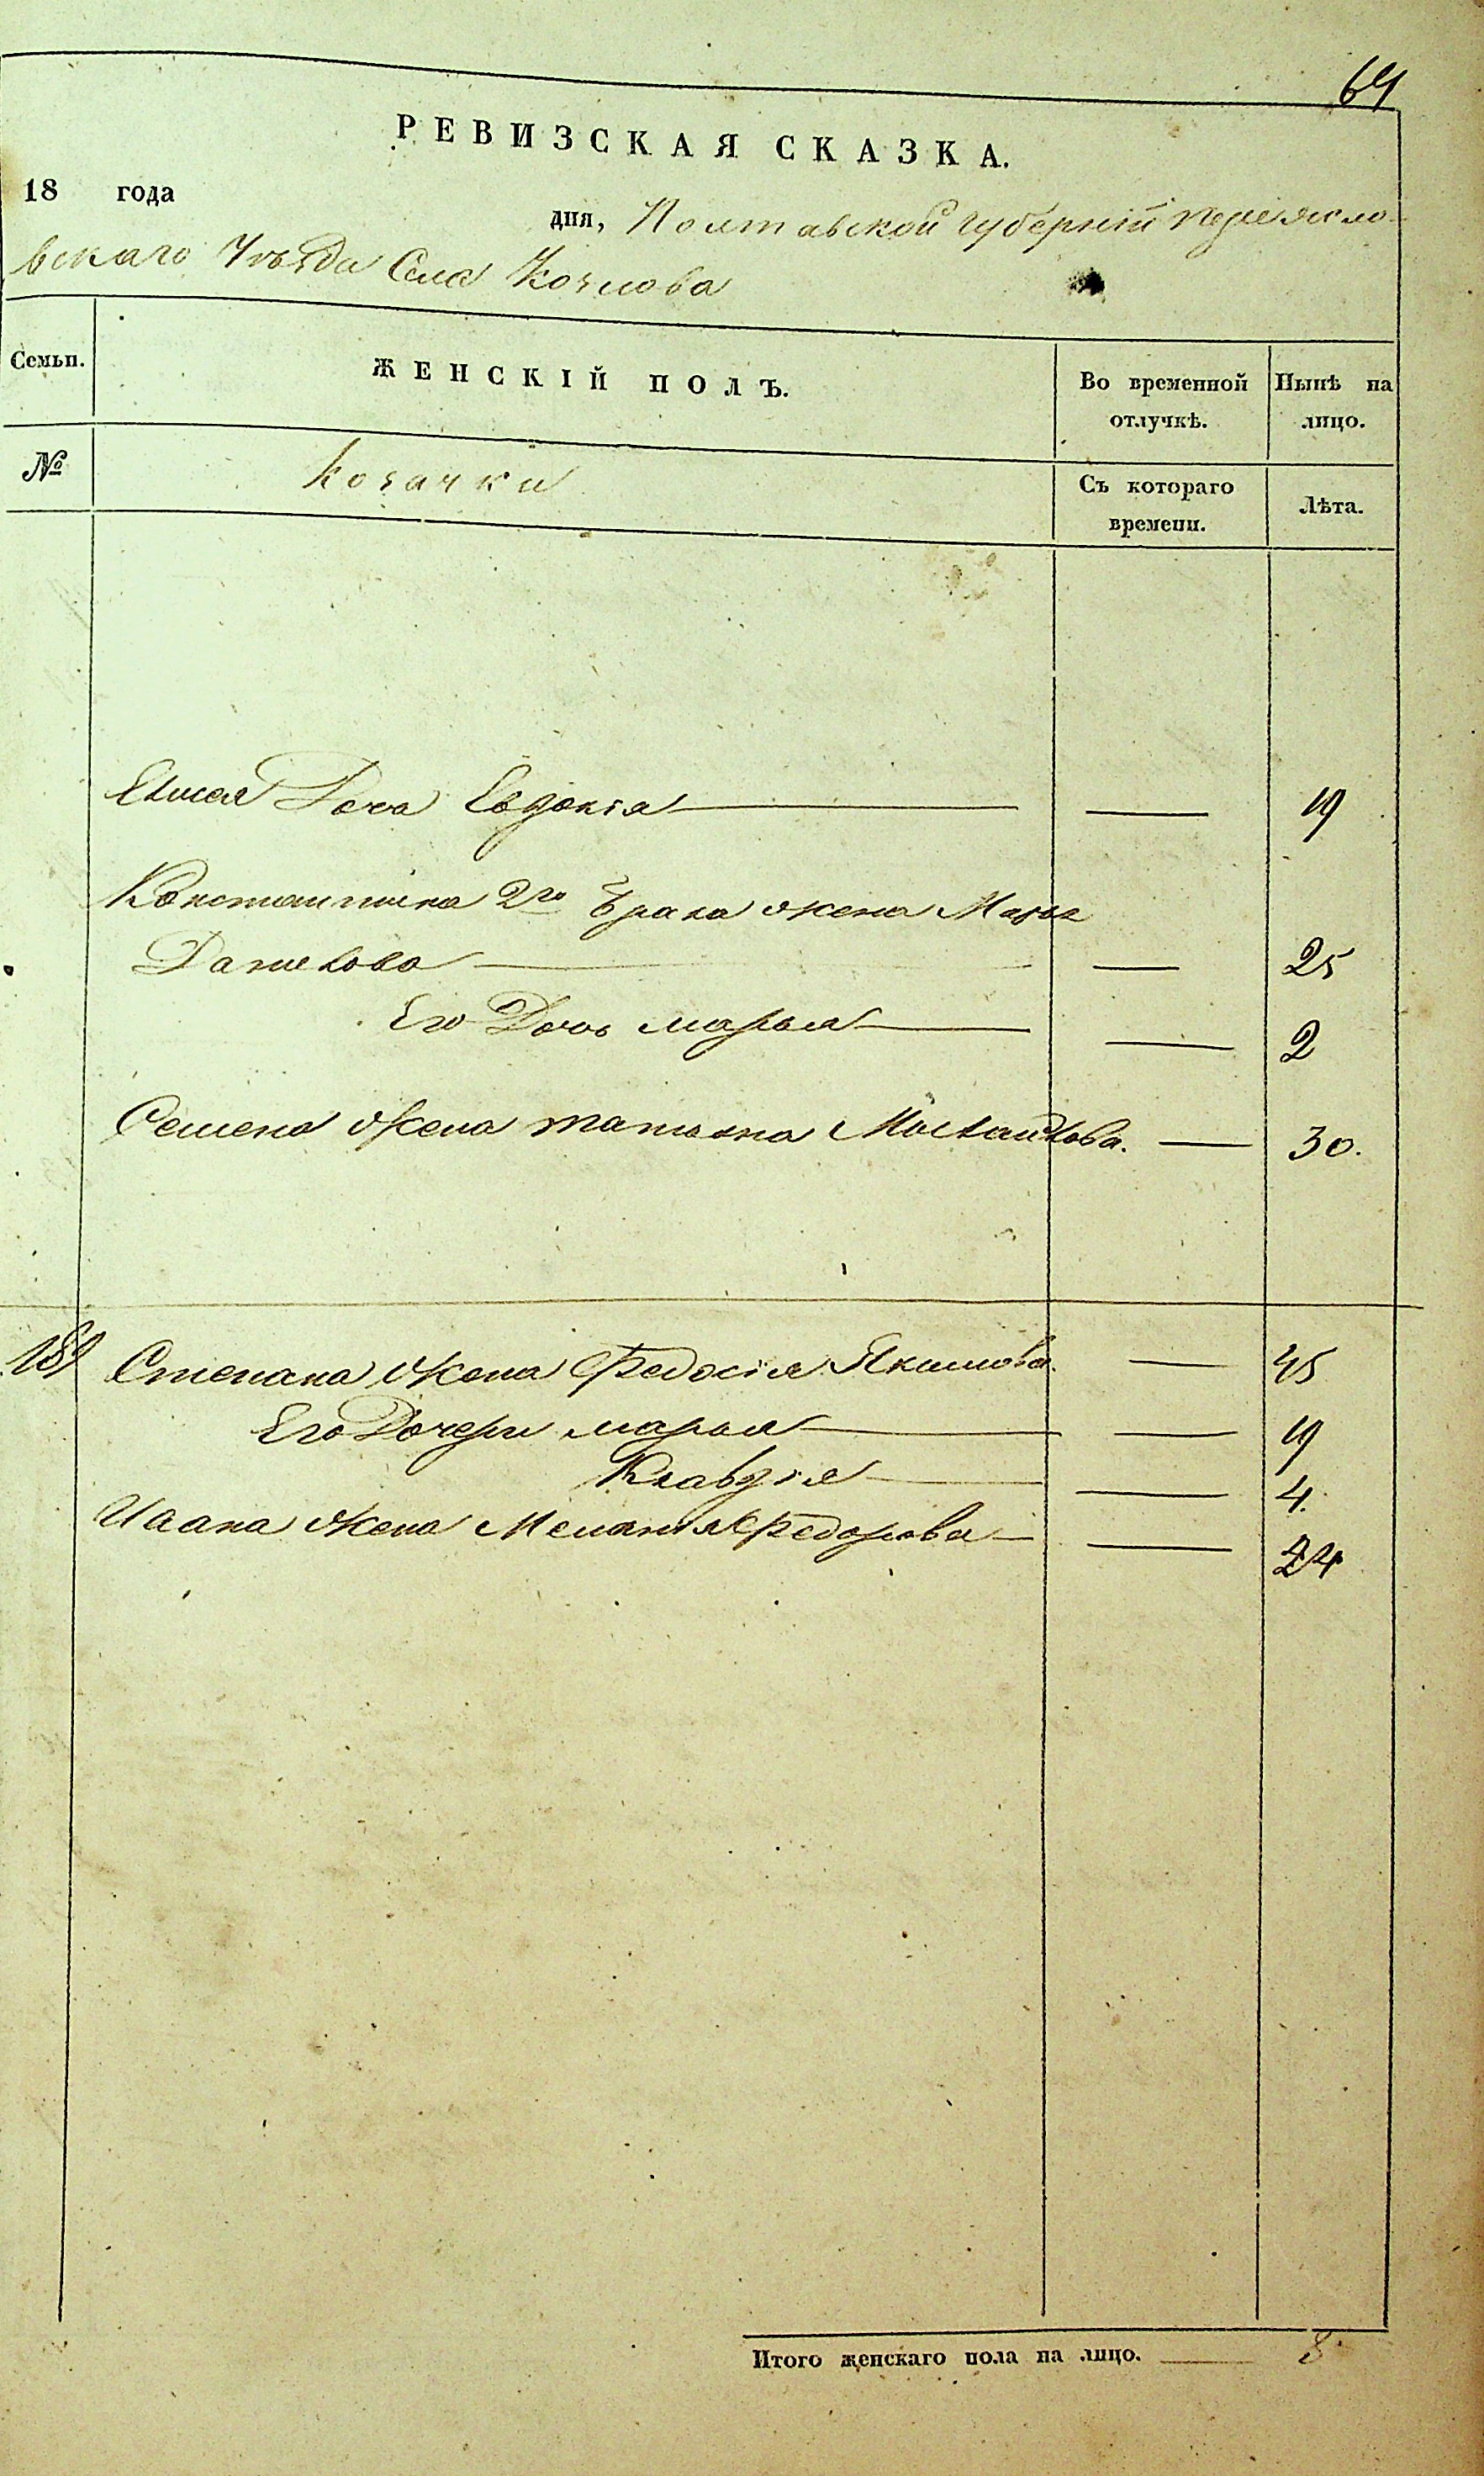 64
РЕВИЗСКАЯ СКАЗКА.
18 года дня, Полтавской губерніи Переясло-
вскаго Уѣзда Села Козлова
Семьи. ЖЕНСКІЙ ПОЛЪ. Во временной отлучкѣ. Нынѣ на лицо.
№ Козачки Съ котораго времени. Лѣта.
Дочь Евдокія 19
Константина 2го брака жена Марья
Данилова 25
Его Дочь марья 2
Семена жена татьяна 30.
181 Степана жена Федосія Якимова 45
Его Дочери марья 19
Клавдія 4.
Ивана жена Меланія Федорова 24
Итого женскаго пола на лицо. 8